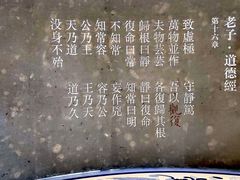 老子·道德經
第十六章
致虛極 守靜篤
萬物並作 吾以觀復
夫物芸芸 各復歸其根
歸根曰靜 靜曰復命
復命曰常 知常曰明
不知常 妄作兇
知常容 容乃公
公乃王 王乃天
天乃道 道乃久
没身不殆